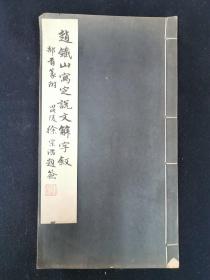 趙鐵山寫定說文解字敘
部首篆打
毘陵徐宗浩題簽